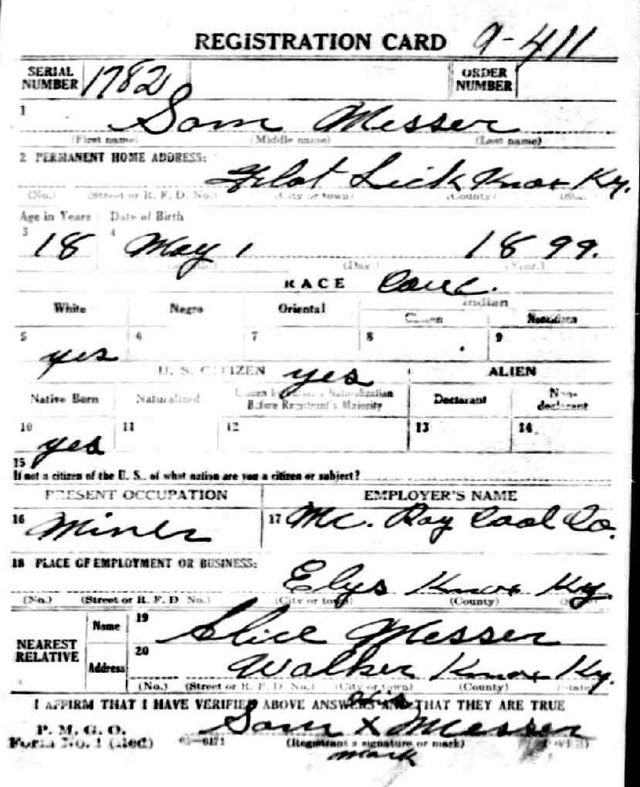 REGISTRATION CARD 9-411
SERIAL NUMBER 1782 ORDER NUMBER
1 Sam Messer
(First name) (Middle name) (Last name)
2 PERMANENT HOME ADDRESS:
Flat Lick Knox Ky.
(No.) (Street or R. F. D. No.) (City or town) (County) (State)
Age in Years Date of Birth
3 18 4 May 1 1899.
(Day.) (Year.)
RACE Cauc.
White Negro Oriental Indian
Citizen Noncitizen
5 6 7 8 9
yes
U. S. CITIZEN yes ALIEN
Native Born Naturalized Citizen by Father's Naturalization Before Registrant's Majority Declarant Non-declarant
10 11 12 13 14
yes
15
If not a citizen of the U. S., of what nation are you a citizen or subject?
PRESENT OCCUPATION EMPLOYER'S NAME
16 Miner 17 Mc. Roy Coal Co.
18 PLACE OF EMPLOYMENT OR BUSINESS:
Elys Knox Ky
(No.) (Street or R. F. D No.) (City or town) (County) (State)
NEAREST RELATIVE Name 19 Alice Messer
Address 20 Walker Knox Ky.
(No.) (Street or R. F. D No.) (City or town) (County) (State)
I AFFIRM THAT I HAVE VERIFIED ABOVE ANSWERS AND THAT THEY ARE TRUE
his
P. M. G. O.
Form No. 1 (Red) Sam X Messer
(Registrant's signature or mark)
mark